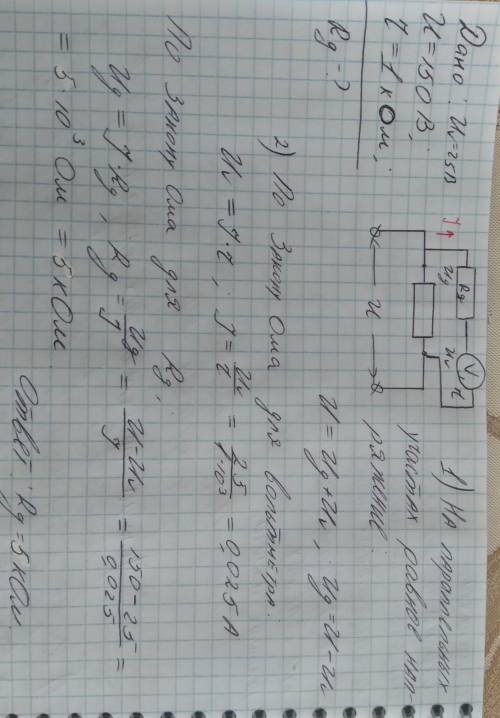 Дано: Uv=25В
U=150В,
r=1кОм,
Rg-?
I
Rg
V
r
Ug
Uv
U
1) На параллельных
участках равное нап-
ряжение:
U = Ug+Uv, Ug=U-Uv
2) По закону Ома для вольтметра
Uv = I·r, I = Uv/r = 25/1·10³ = 0,025 А
По закону Ома для Rg,
Ug = I·Rg, Rg = Ug/I = U-Uv/I = 150-25/0,025 =
= 5·10³ Ом = 5кОм
Ответ: Rg=5кОм.